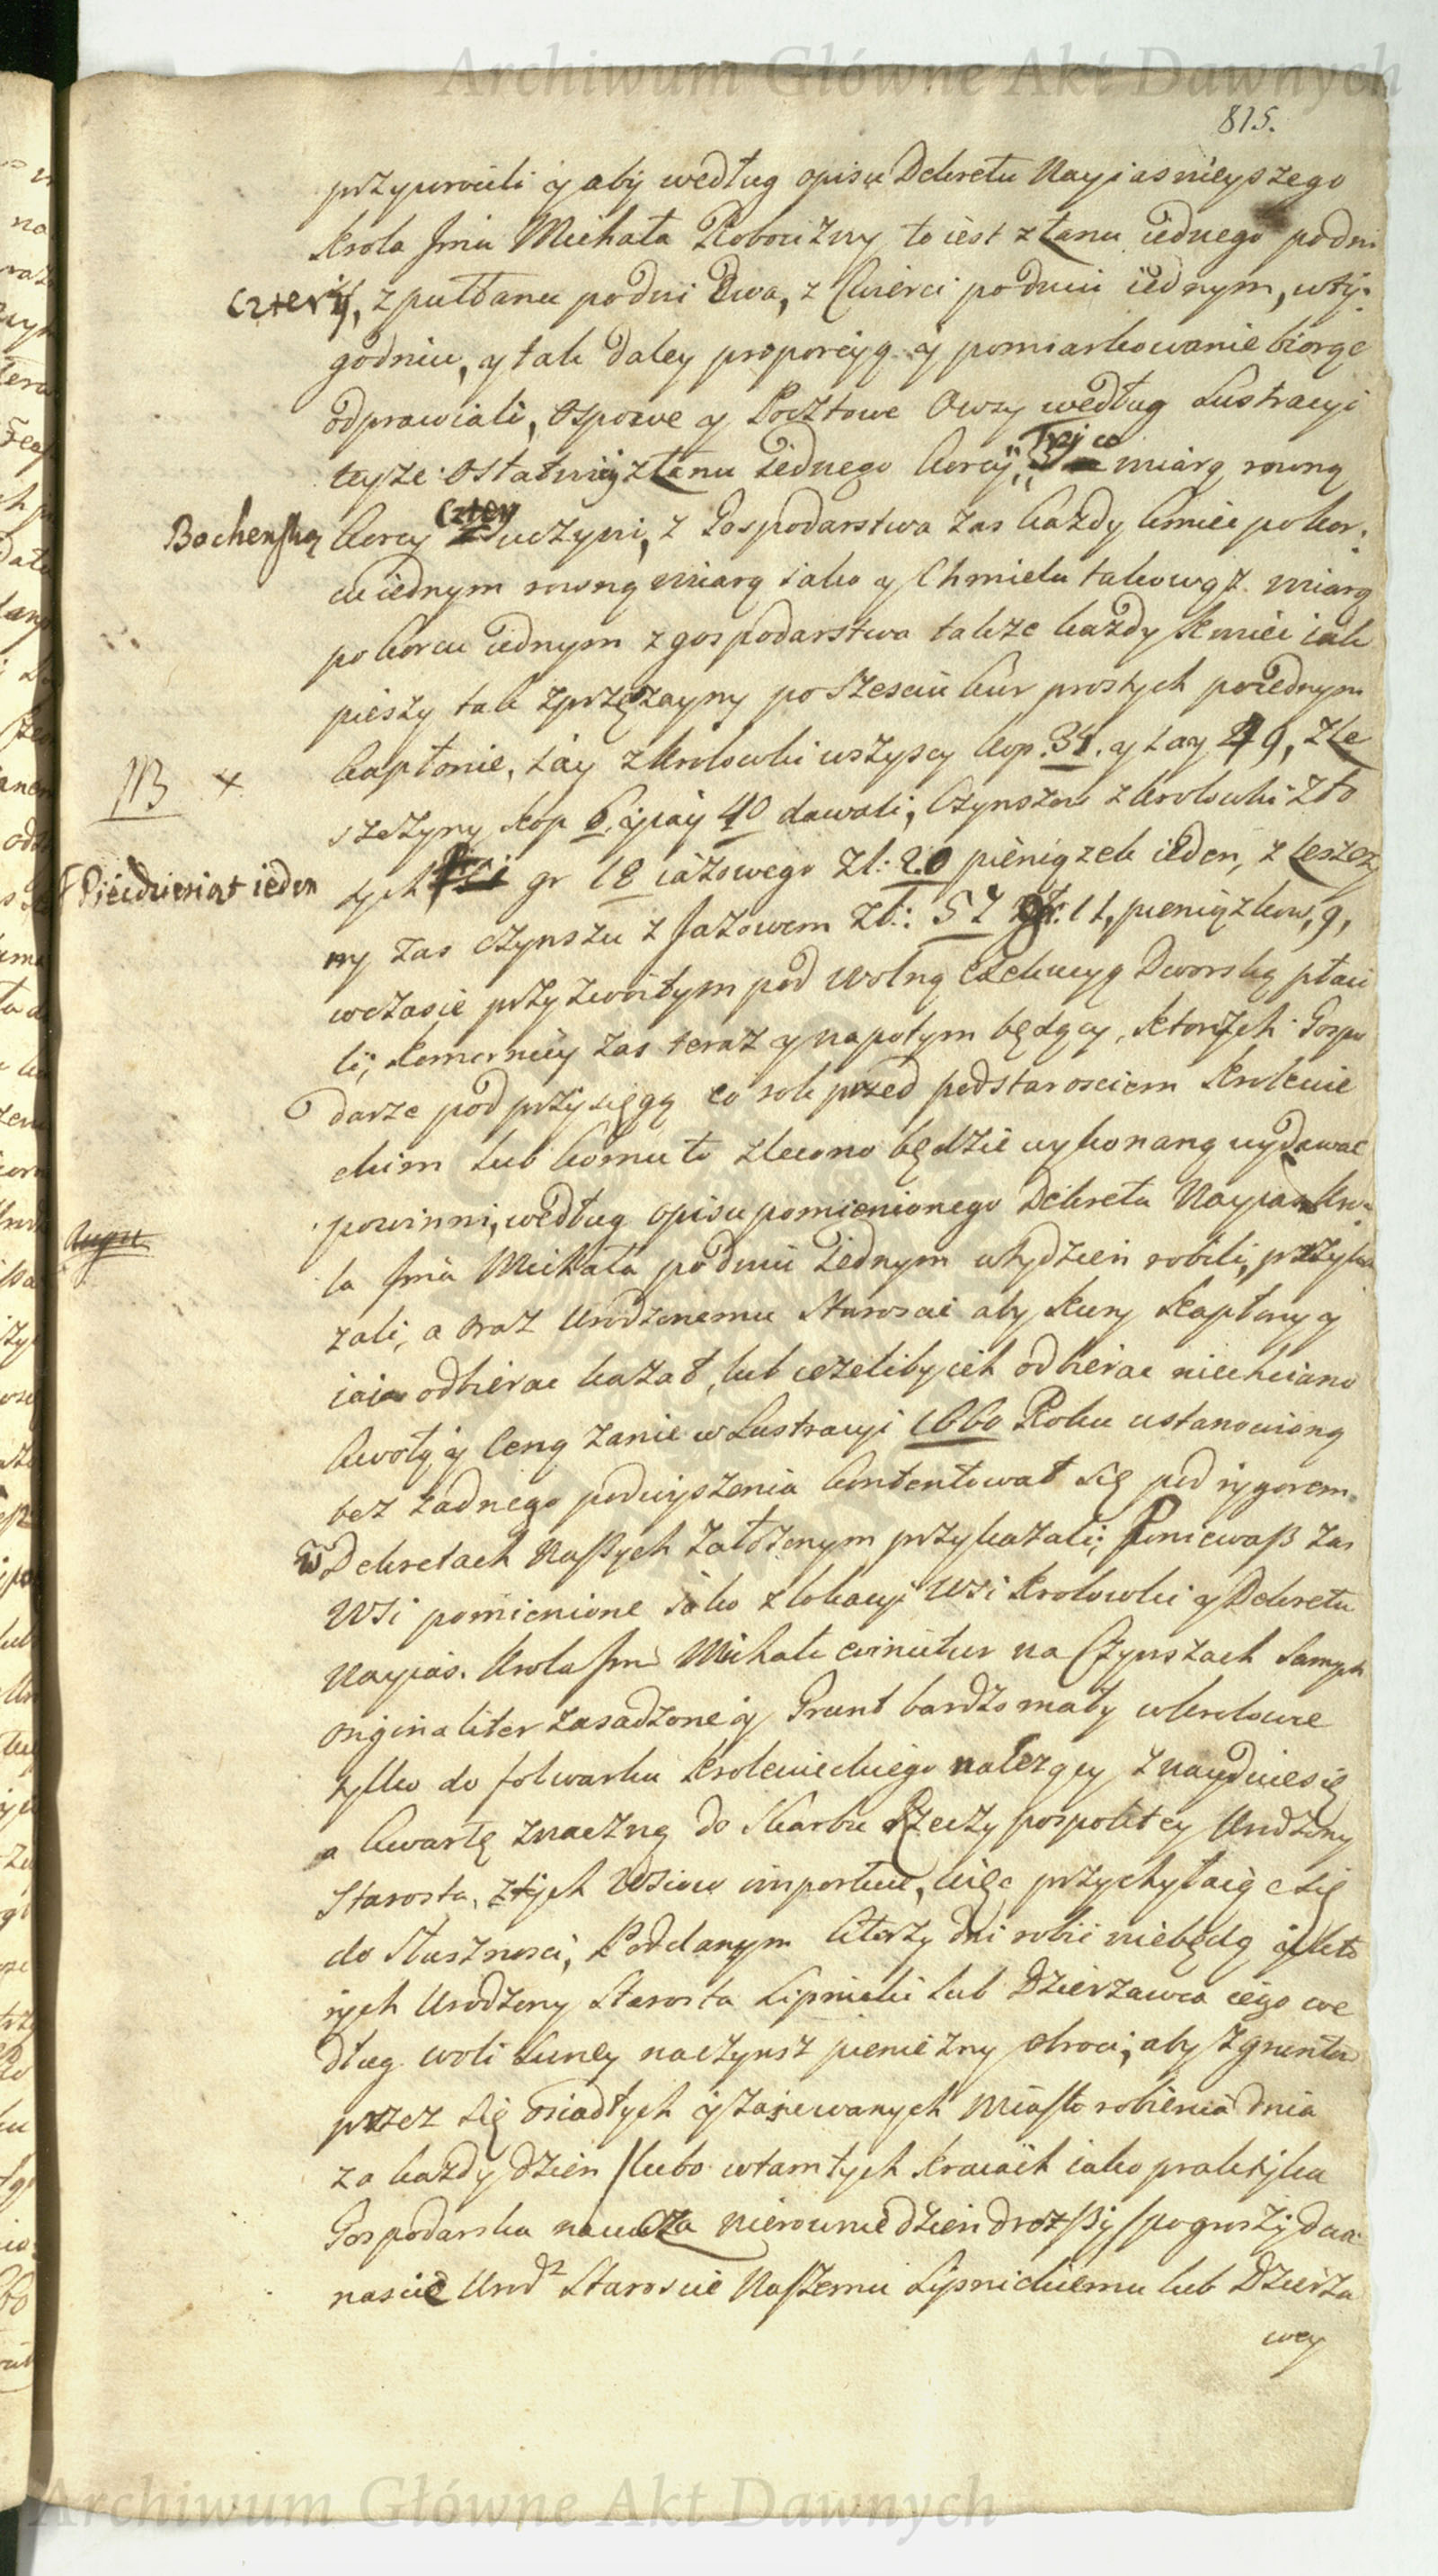 Archiwum Główne Akt Dawnych
815.
przywrocili y aby według opisu Dekretu Nayiasnieyszego
Krola Jmci Michała Robocizny to iest z łanu iednego po dni
cztery, z puł łanu po dni dwa, z Cwierci po dniu iednym, w ty-
godniu, y tak daley proporcyą y pomiarkowanie biorąc
odprawiali, Osypowe y Pocztowe Owsy według Lustracyi
teyże Ostatniey z łanu iednego korcy, Trzy co miarą rowną
Bochenską korcy cztery uczyni, z Gospodarstwa zas każdy kmiec po kor-
cu iednym rowną miarą iako y Chmielu takowąż miarą
po korcu iednym z gospodarstwa także każdy Kmiec iak
pieszy tak sprzężayny po szesciu kur prostych po iednym
kapłonie, iay z Krolowki wszyscy kop. 34. y iay 49, z Le
113 x
szczyny kop 6 y iay 40 dawali, Czynszow z krolowki zło
Pięcdziesiąt ieden
tych gr 18 iażowego zł: 20 pieniązek ieden, z Leszczy
ny zas czynszu z Jażowem zł: 57 gr: 11, pieniązkow, 9,
w czasie przyzwoitym pod wolną Exekucyą Dworską płaci
li, Komornicy zas teraz y napotym będący, ktorych Gospo
darze pod przysięgą co rok przed podstarosciem Krolewie
ckim lub komu to zlecono będzie wykonaną wydawac
powinni, według opisu pomienionego Dekretu Nayias Kro-
Augu
la Jmci Michała po dniu iednym w tydzien robili, przyka
zali, a oraz Urodzonemu Staroscie aby kury kapłony y
iaia odbierac kazał, lub ieżeliby ich odbierac niechciano
kwotą y Ceną za nie w Lustracyi 1660 Roku ustanowioną
bez żadnego podwyszenia kontentował się pod rygorem
w Dekretach Naszych założonym przykazali; Ponieważ zas
Wsi pomienione iako z lokacyi Wsi Krolowki y Dekretu
Nayias. Krola Jmci Michała evincitur na Czynszach samych
originaliter zasadzone y Grunt bardzo mały w krolowce
tylko do folwarku Krolewieckiego należący znayduie się
a kwartę znaczną do Skarbu Rzeczypospolitey Urodzony
Starosta, z tych Wsiow importuie, więc przychylaiąc się
do słusznosci, Poddanym ktorzy dni robic niebędą y kto
rych Urodzony Starosta Lipnicki lub Dzierzawca iego we
dług woli swoiey na czynsz pieniezny obroci, aby z gruntu
przez się osiadłych y zasiewanych miasto robienia dnia
za każdy dzien /lubo w tamtych kraiach iako praktyka
Gospodarska naucza nierownie dzien droższy/ po groszy dwa-
nascie Urodz Staroscie Naszemu Lipnickiemu lub Dzierza
wcy
Archiwum Główne Akt Dawnych